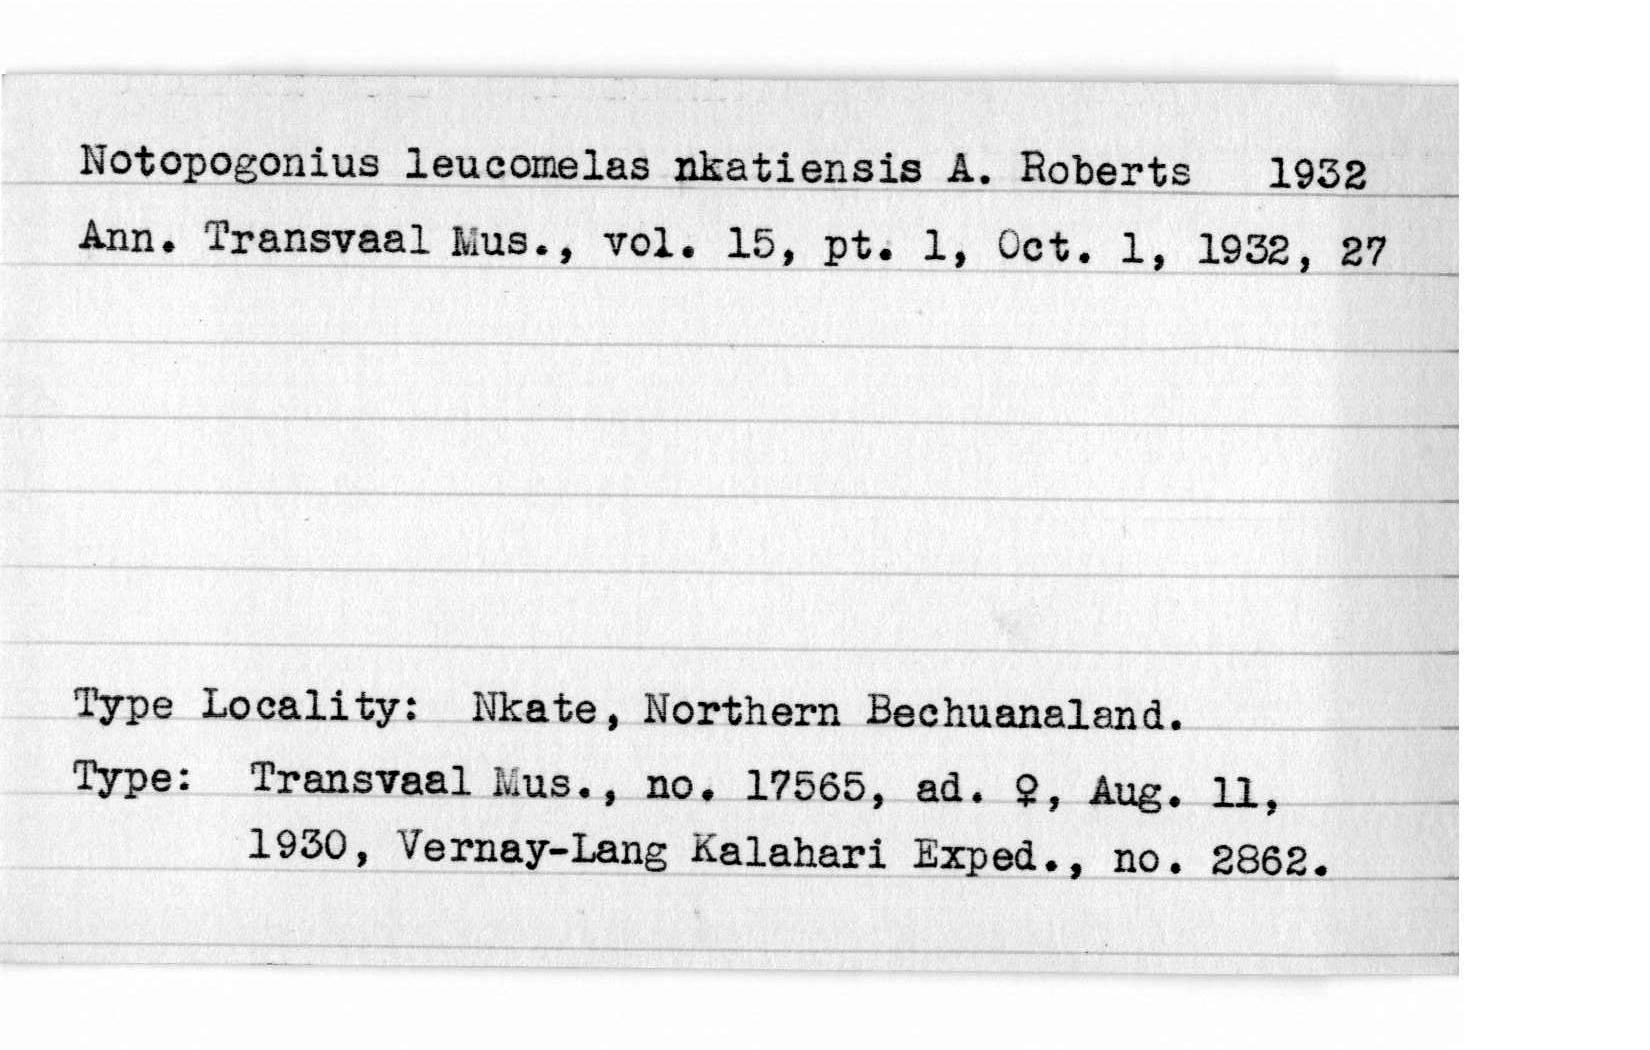 Notopogonius leucomelas nkatiensis A. Roberts 1932
Ann. Transvaal Mus., vol. 15, pt. 1, Oct. 1, 1932, 27
Type Locality: Nkate, Northern Bechuanaland.
Type: Transvaal Mus., no. 17565, ad. ♀, Aug. 11,
1930, Vernay-Lang Kalahari Exped., no. 2862.